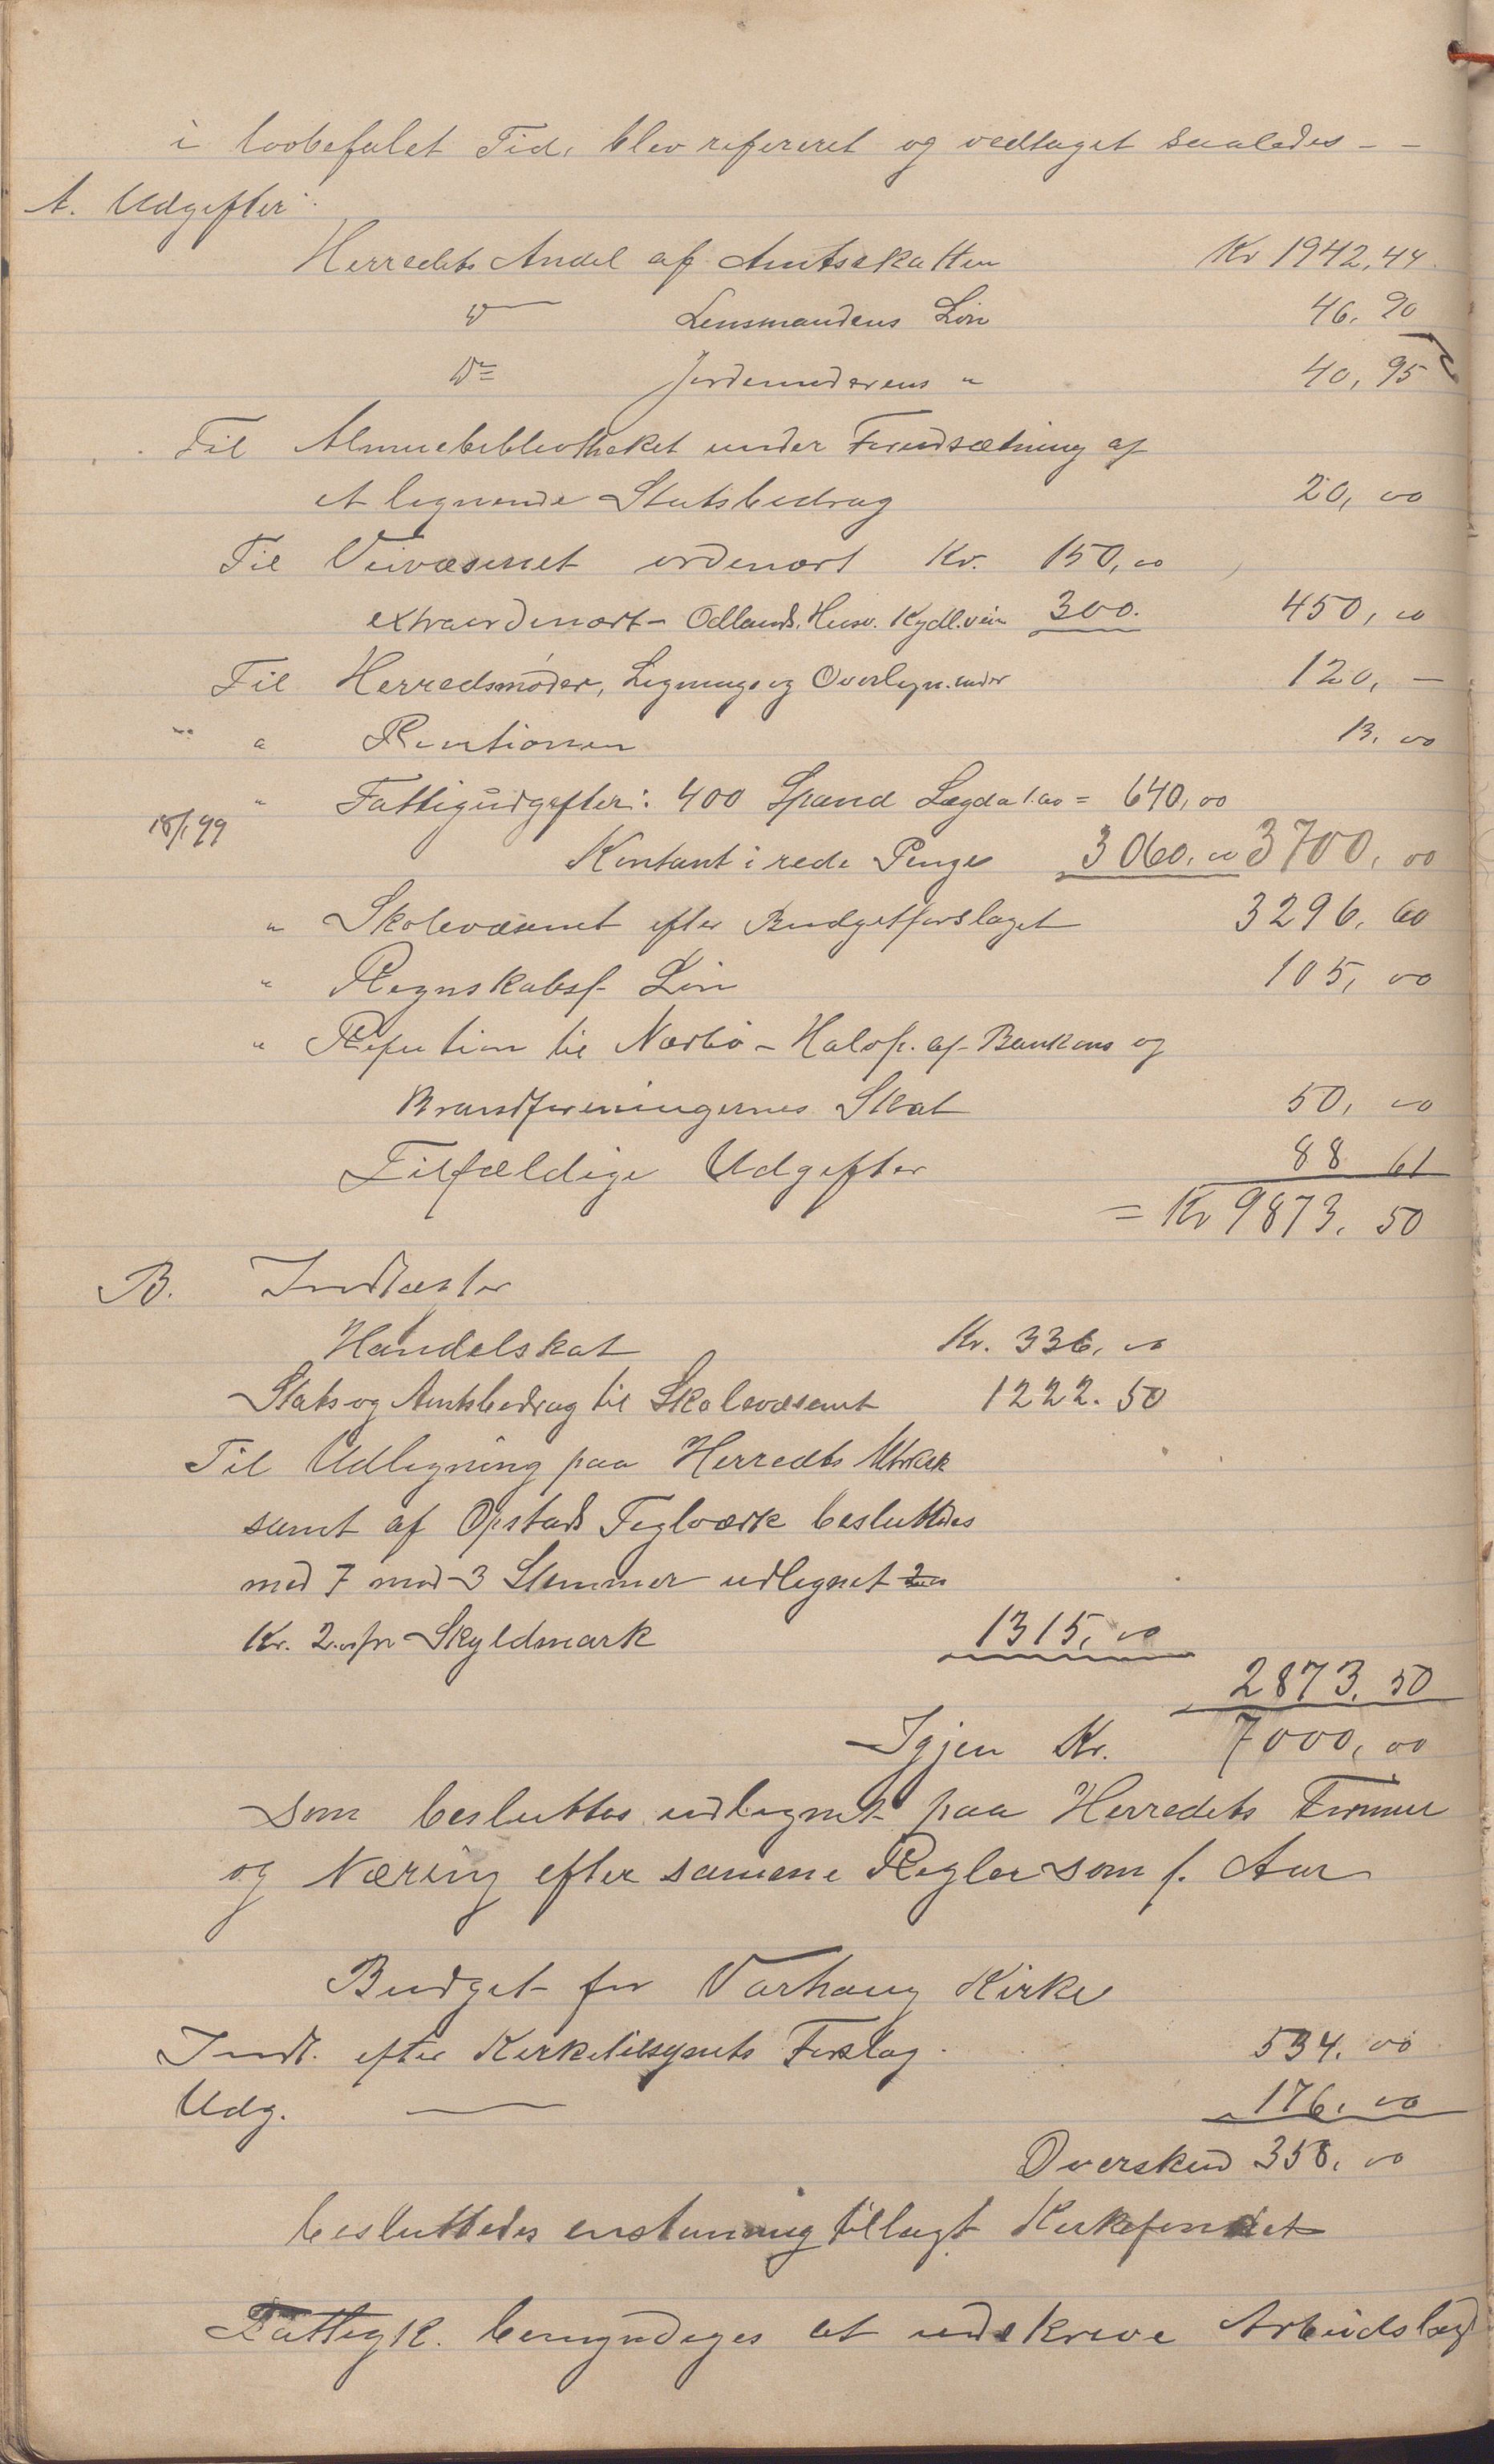 i lovbefalet Tid, blev refereret og vedtaget saaledes - -
A. Udgifter:
Herredets Andel af Amtsskatten Kr 1942,44
Do Lensmandens Løn 46,90
Do Jordemoderens " 40,95
Til Almuebibliotheket under Forudsætning af
et lignende Statsbidrag 20,00
Til Veivæsenet ordenært Kr. 150,00
extraordenært - Odlands, Husv. Kydl.vein 300. 450,00
Til Herredsmøder, Lignings og Overlign.møder 120, -
" " Revisionen 13,00
" Fattigudgifter: 400 Spand Lægd a 1.60 = 640,00
18/1 99
Kontant i rede Penge 3060,00 3700,00
" Skolevæsenet efter Budgetforslaget 3296,60
" Regnskabsf. Løn 105,00
" Refution til Nærbø - Halvp. af Bankens og
Brandforeningernes Skat 50,00
Tilfældige Udgifter 88 61
= Kr 9873,50
B. Indtægter
Handelskat Kr. 336,00
Stats og Amtsbidrag til Skolevæsenet 1222.50
Til Udligning paa Herredets Matrikk
samt af Opstad Teglværk besluttedes
med 7 mod 3 Stemmer udlignet
Kr. 2.00 pr Skyldmark 1315,00
2873.50
Igjen Kr. 7000,00
som besluttes udlignet paa Herredets Formue
og Næring efter samme Regler som f. Aar
Budget for Varhaug Kirke
Indt. efter Kirketilsynets Forslag. 534.00
Udg. — 176,00
Overskud 358,00
besluttedes enstemmig tillagt Kirkefondet
Fattigk. bemyndiges at udskrive Arbeidslægd